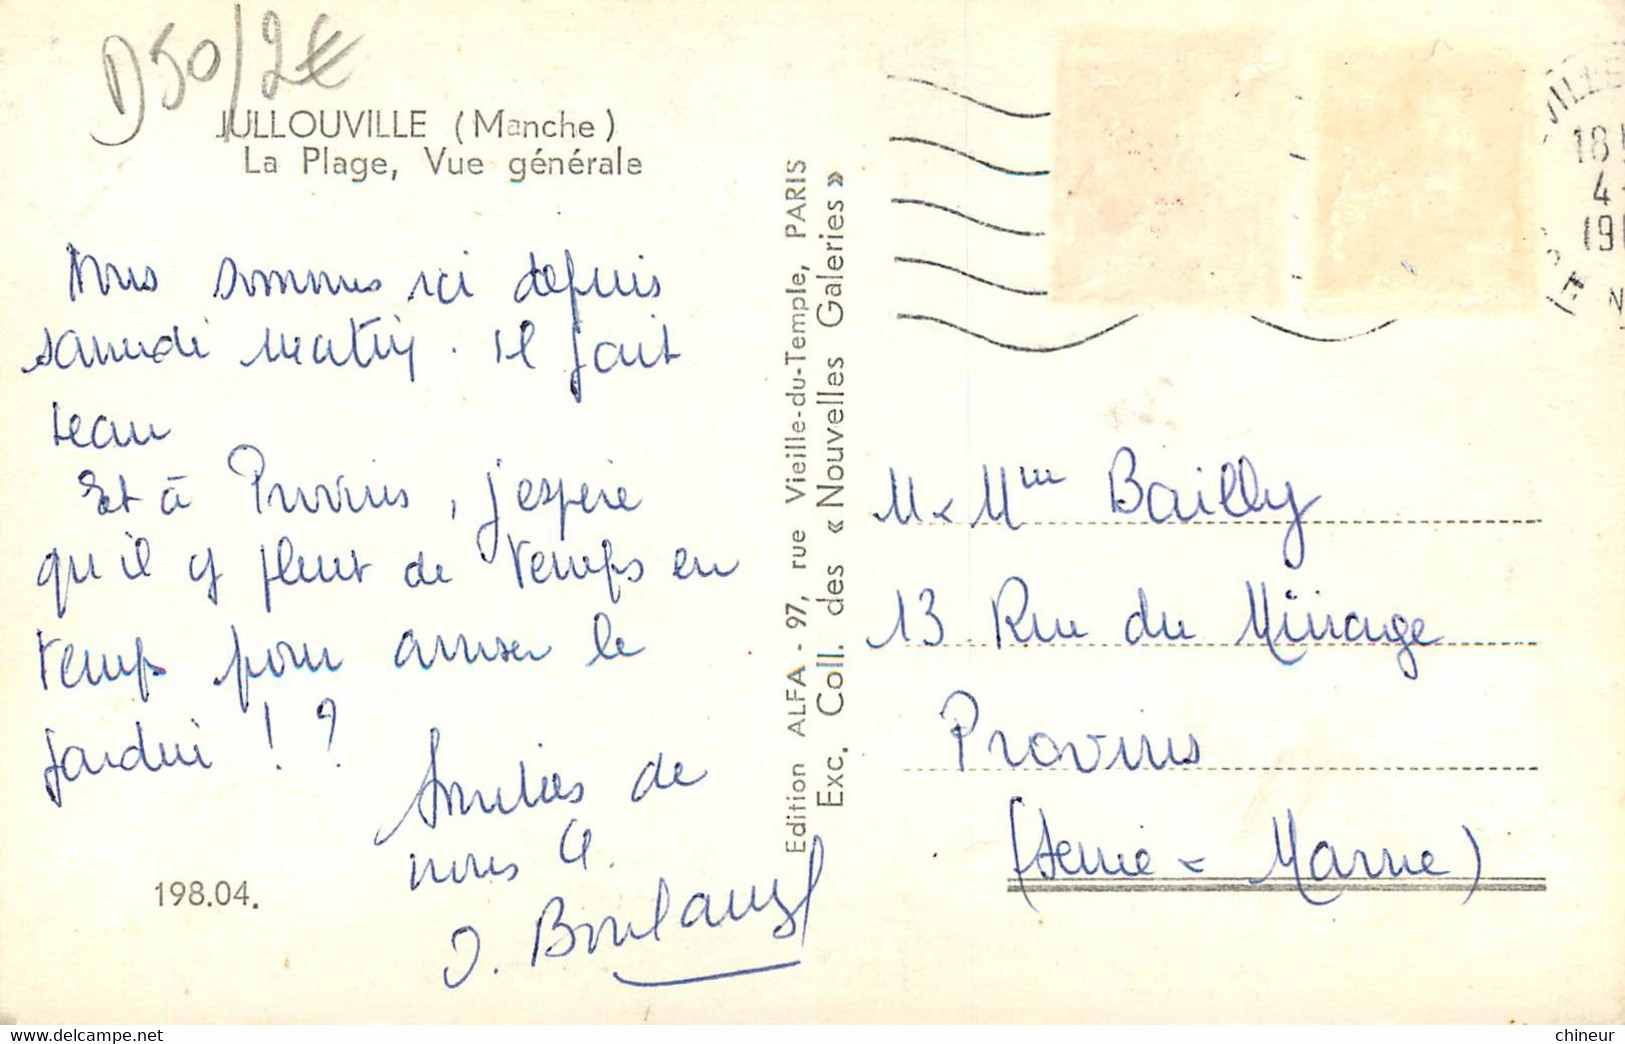 D50/2€
JULLOUVILLE (Manche)
La Plage, Vue générale
Nous sommes ici depuis
samedi matin. Il fait
beau
Et à Provins, j'espère
qu'il y pleut de temps en
temps pour arroser le
jardin ! ?
Amitiés de
nous 4.
J. Boulanger
198.04.
Edition ALFA - 97, rue Vieille-du-Temple, PARIS
Exc. Coll. des « Nouvelles Galeries »
VILLE
18 H
4 -
19
M & Mme Bailly
13 Rue du Minage
Provins
(Seine & Marne)
www.delcampe.net
chineur